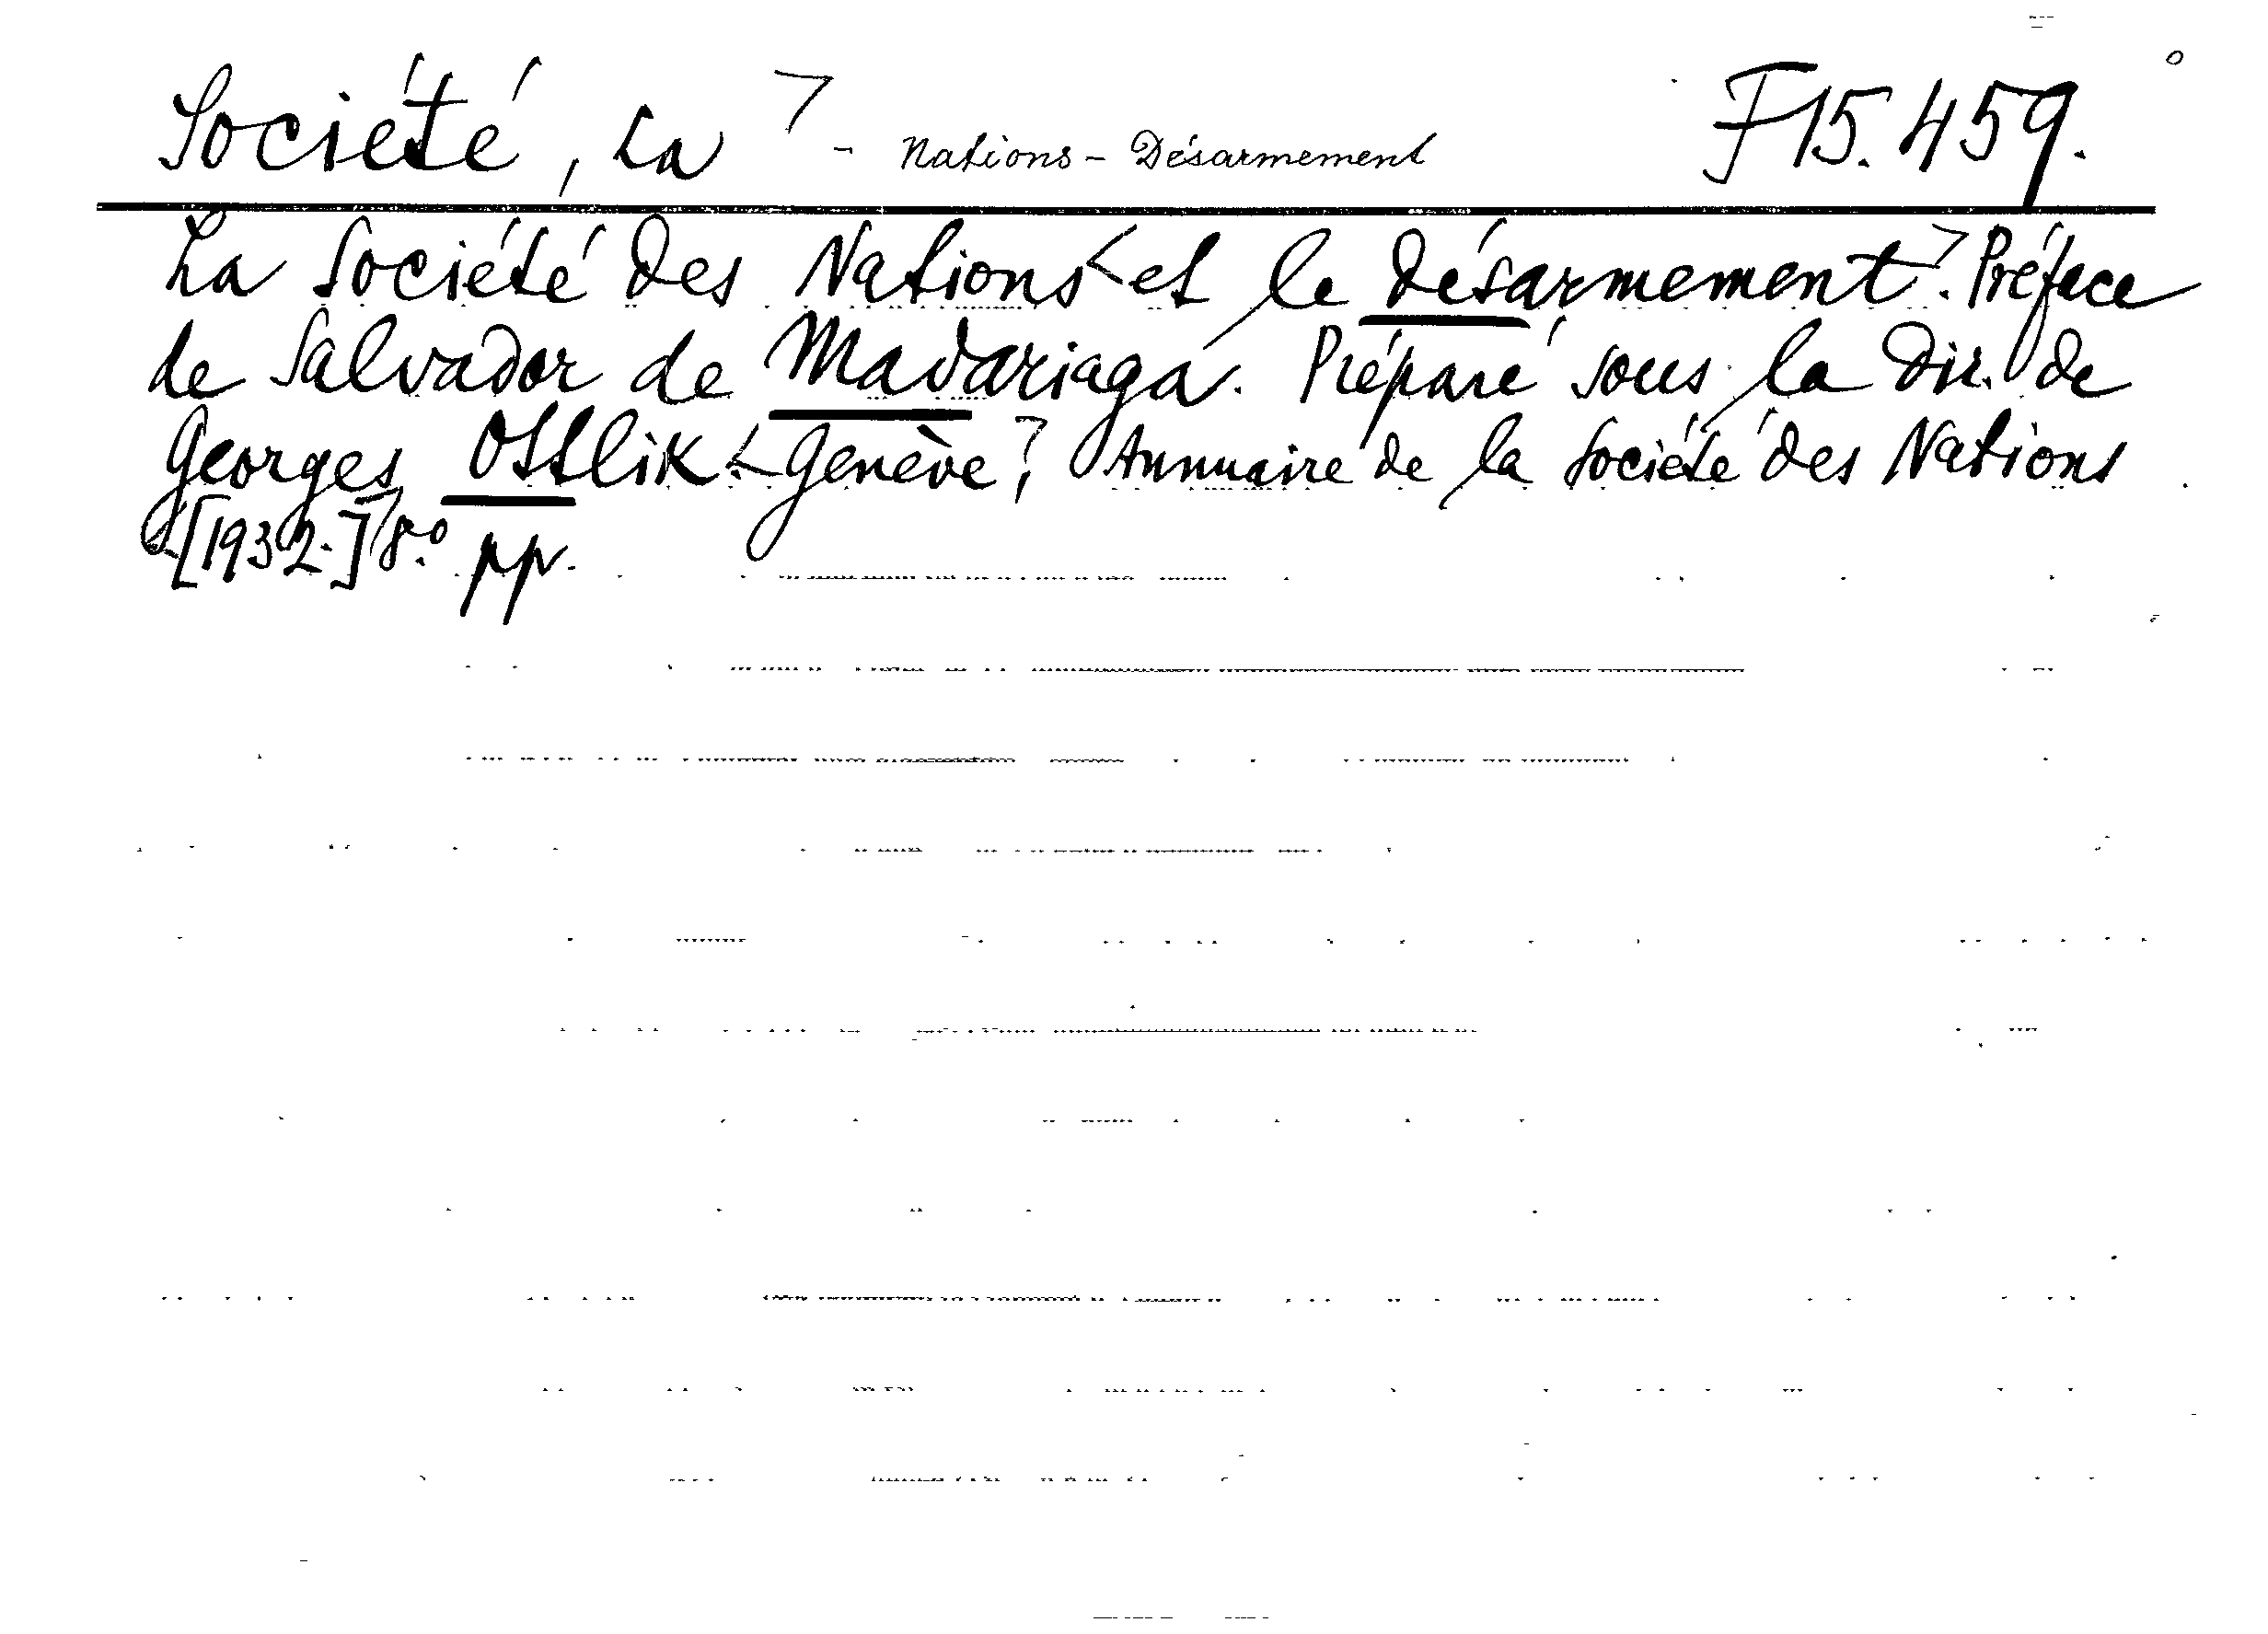 Société, La - Nations - Désarmement F 15.459.
La Société des Nations et le désarmement. Préface
de Salvador de Madariaga. Préparé sous la dir. de
Georges Ottlik. Genève, Annuaire de la Société des Nations
[1932.] 8.º pp.